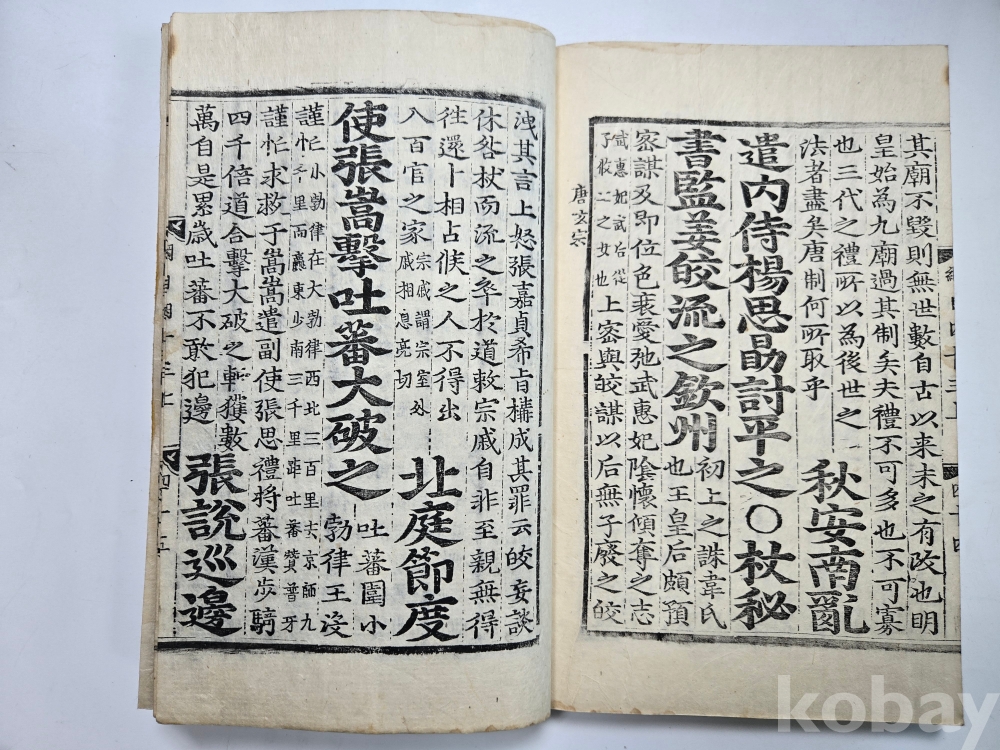 其廟不毀則無世數自古以来未之有改也明
皇始為九廟過其制矣夫禮不可多也不可寡
也三代之禮所以為後世之
法者盡矣唐制何所取乎
秋安南亂
遣内侍楊思勗討平之○杖秘
書監姜皎流之欽州
初上之誅韋氏
也王皇后頗預
密謀及即位色衰愛弛武惠妃陰懷傾奪之志
武惠妃武后從
之女也
上密與皎謀以后無子廢之皎
唐玄宗
洩其言上怒張嘉貞希旨構成其罪云皎妄談
休咎杖而流之卒於道敕宗戚自非至親無得
往還卜相占候之人不得出
入百官之家
宗戚謂宗室外
戚相息亮切
北庭節度
使張嵩擊吐蕃大破之
吐蕃圍小
勃律王沒
謹忙
小勃律在大勃律西北三百里去京師九
千里而羸東少南三千里距吐蕃贊普牙
謹忙求救于嵩嵩遣副使張思禮將蕃漢步騎
四千倍道合擊大破之斬獲數
萬自是累歳吐蕃不敢犯邊
張說巡邊
kobay